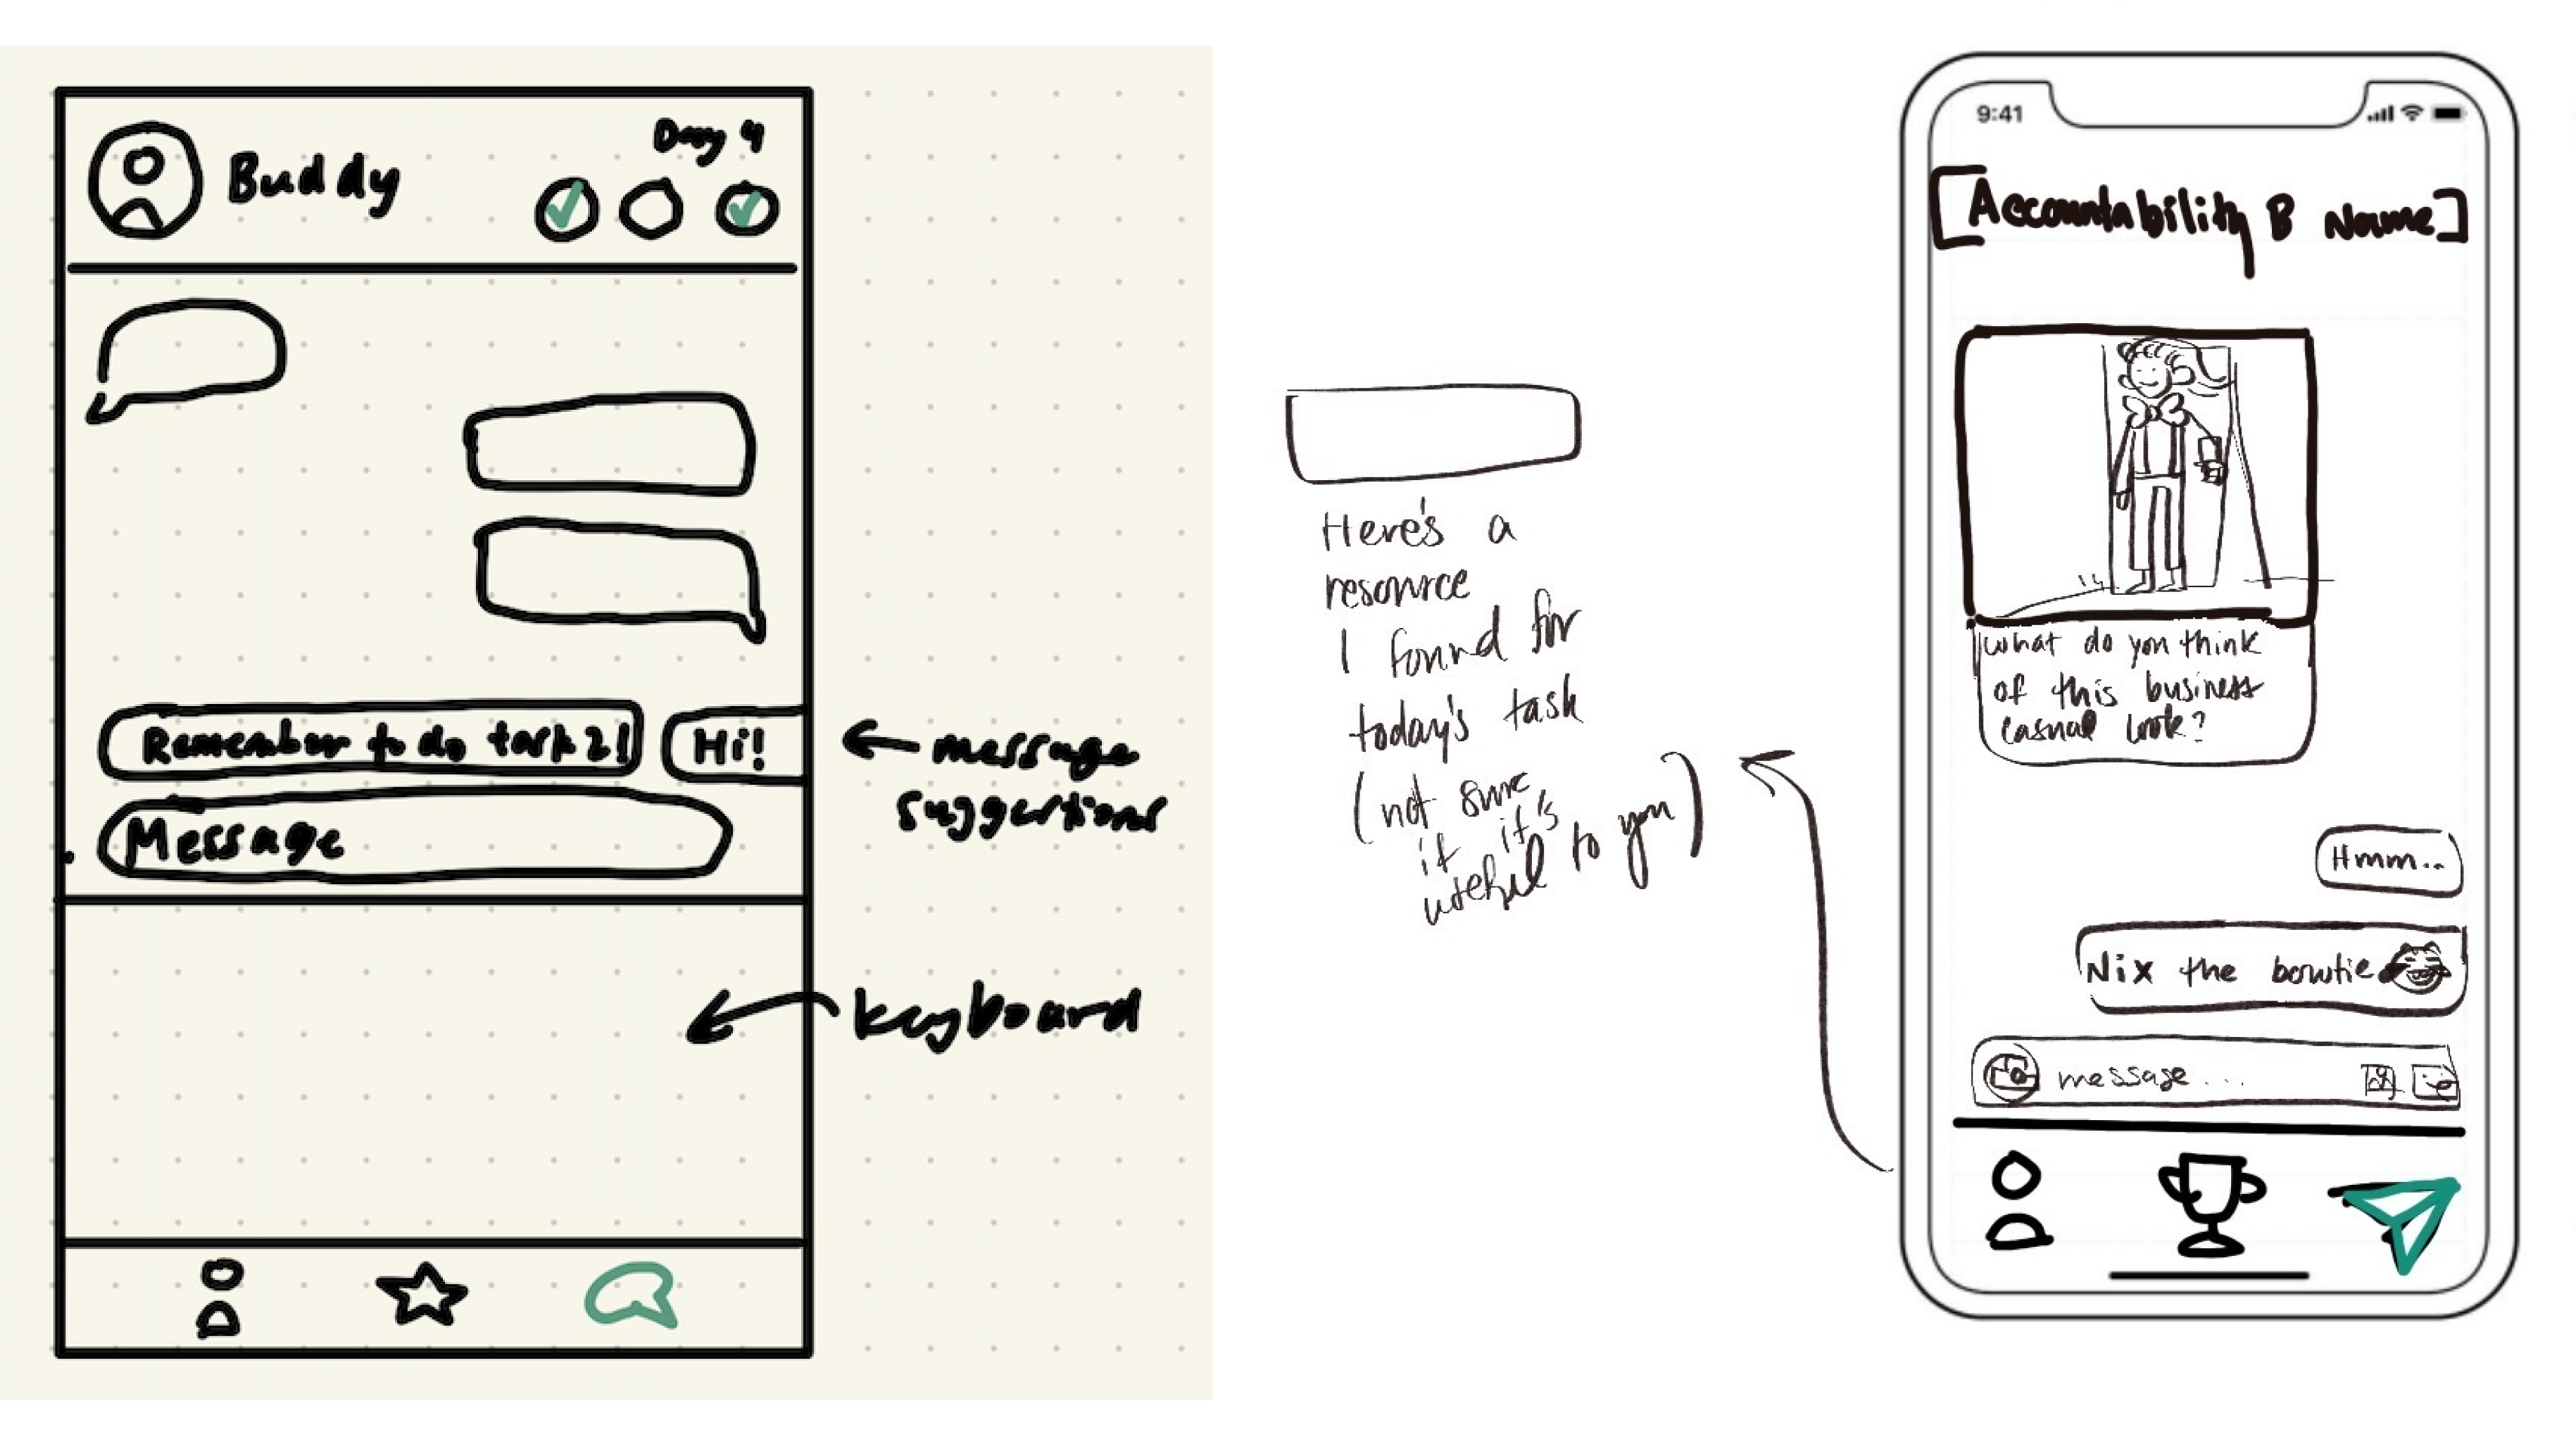 Buddy
Day 4
Remember to do task 2!
Hi!
Message
message
suggestions
keyboard
Here's a
resource
I found for
today's task
(not sure
if it's
useful to you)
9:41
[Accountability B Name]
what do you think
of this business
casual look?
Hmm..
Nix the bowtie
message...